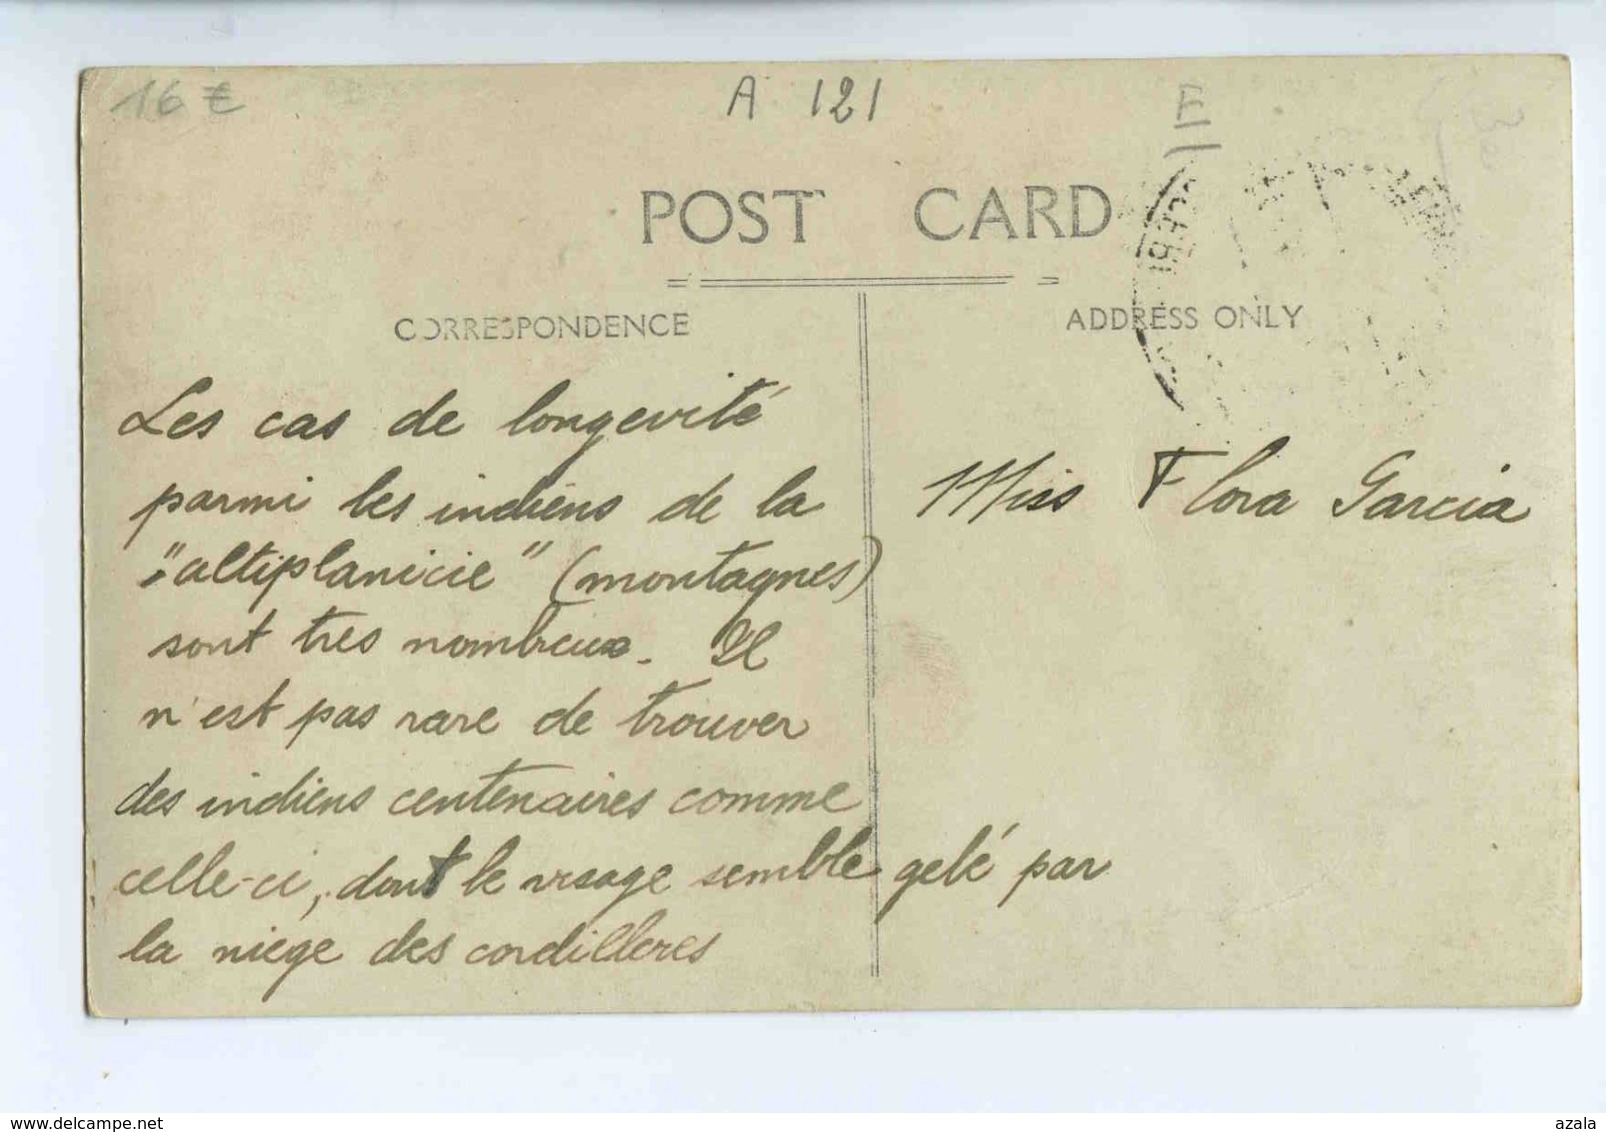 16 €
A 121
F
POST CARD
CORRESPONDENCE
ADDRESS ONLY
Les cas de longevité
parmi les indiens de la
"altiplanicie" (montagnes)
sont tres nombreux. Il
n'est pas rare de trouver
des indiens centenaires comme
celle-ci, dont le visage semble gelé par
la niege des cordilleres
Miss Flora Garcia
delcampe.net
azala